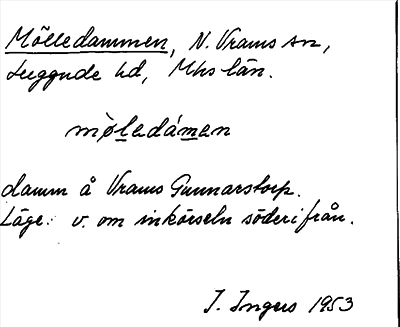 Mölledammen, N. Vrams sn,
Luggude hd, Mhs län.
mø̀ledámen
damm å Vrams Gunnarstorp.
Läge: v. om inkörseln söderifrån.
I. Ingers 1953